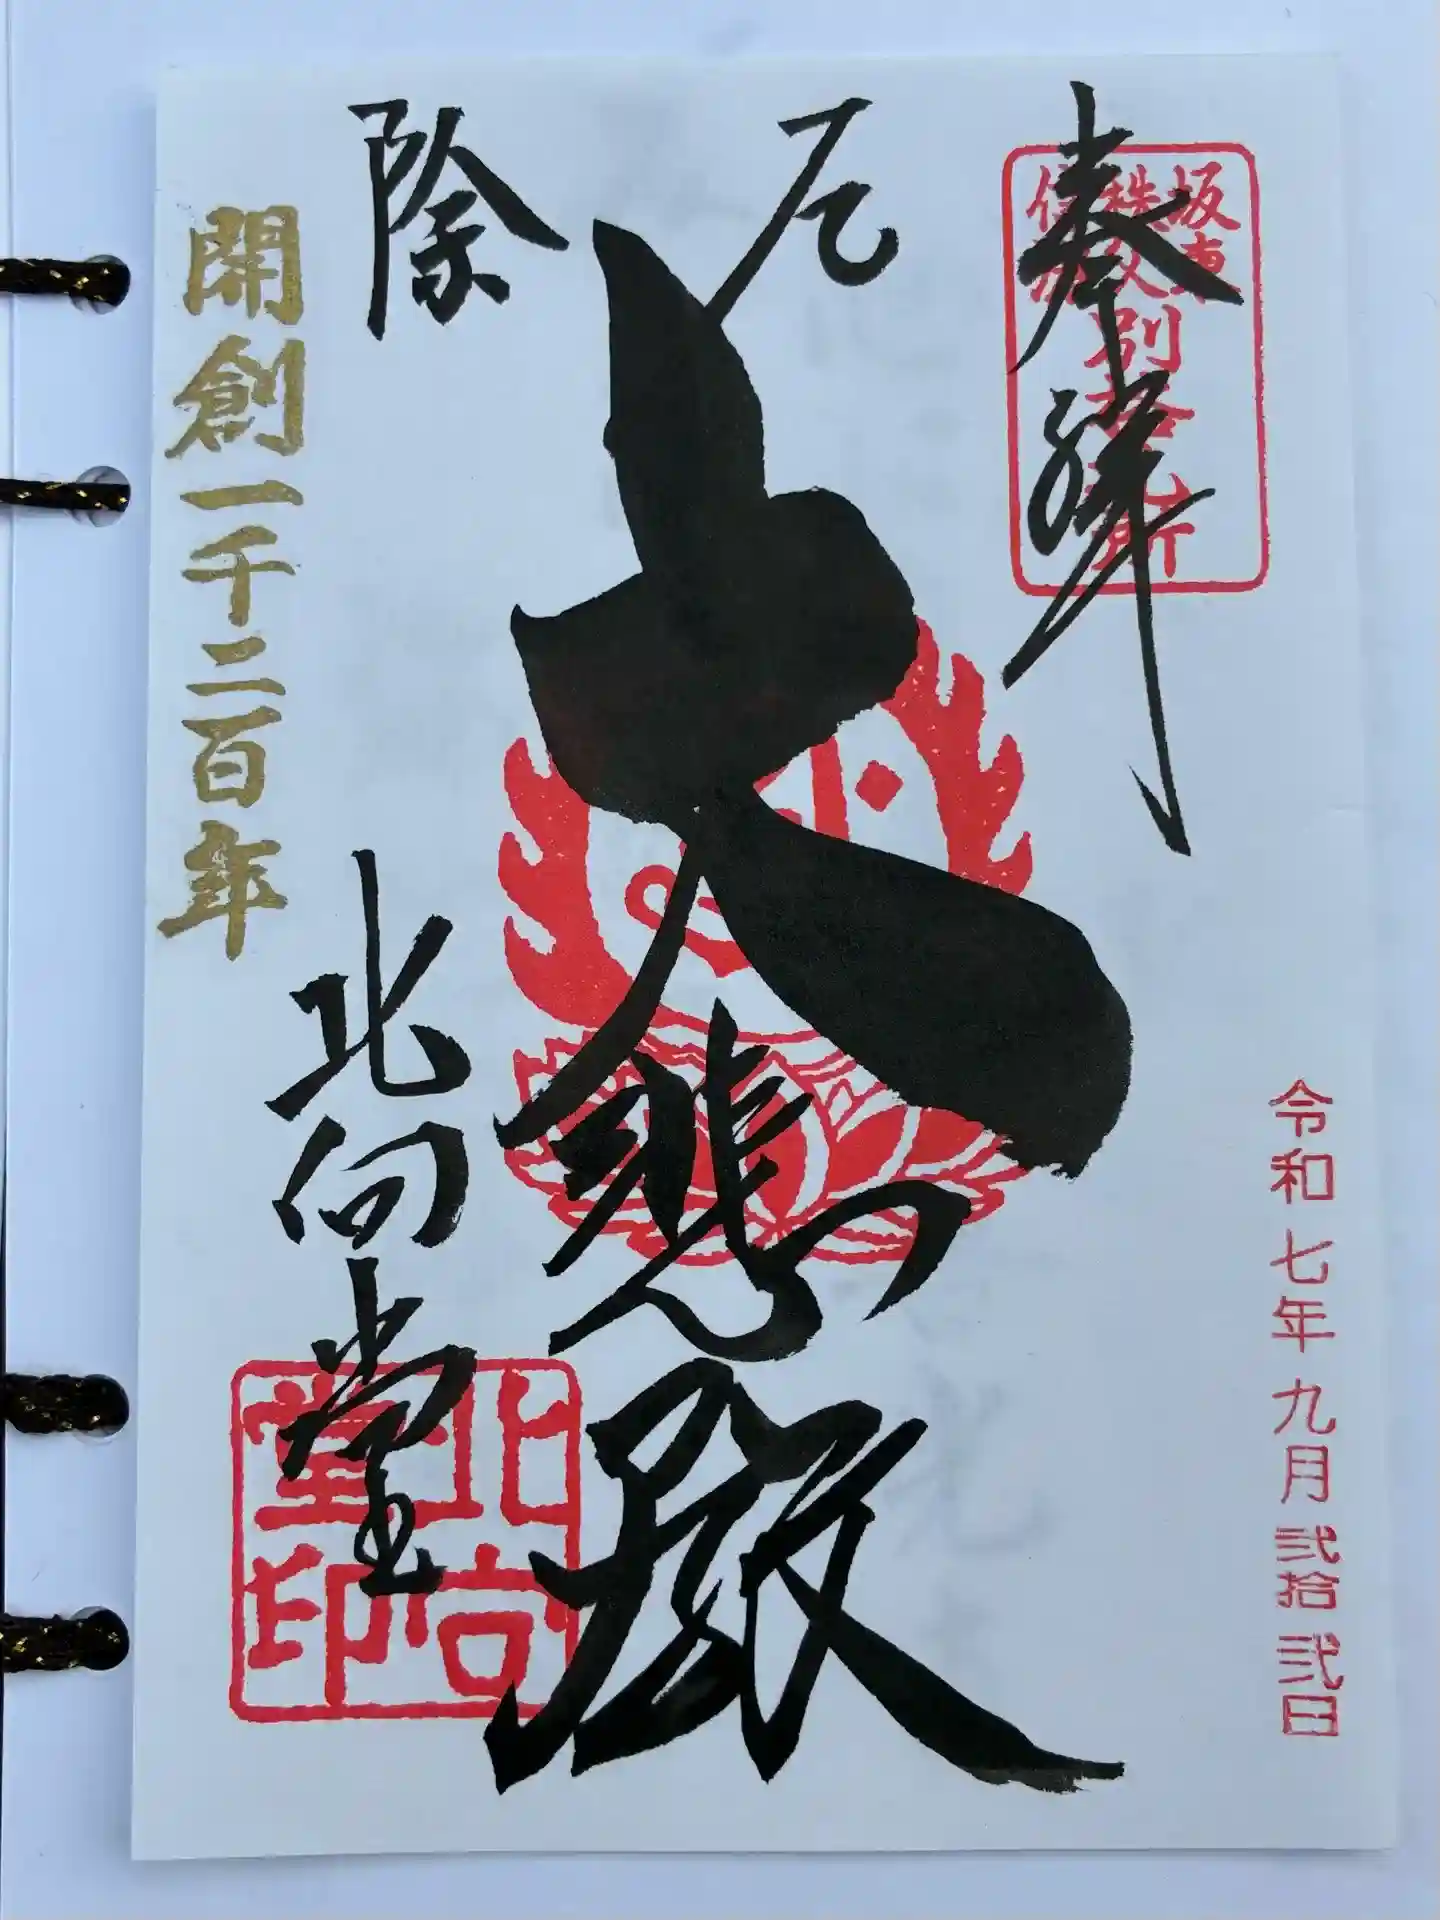 令和七年九月弐拾弐日
奉拝
坂東
秩父
信州
別格札所
厄除
大悲殿
北向堂
北向堂印
開創一千二百年